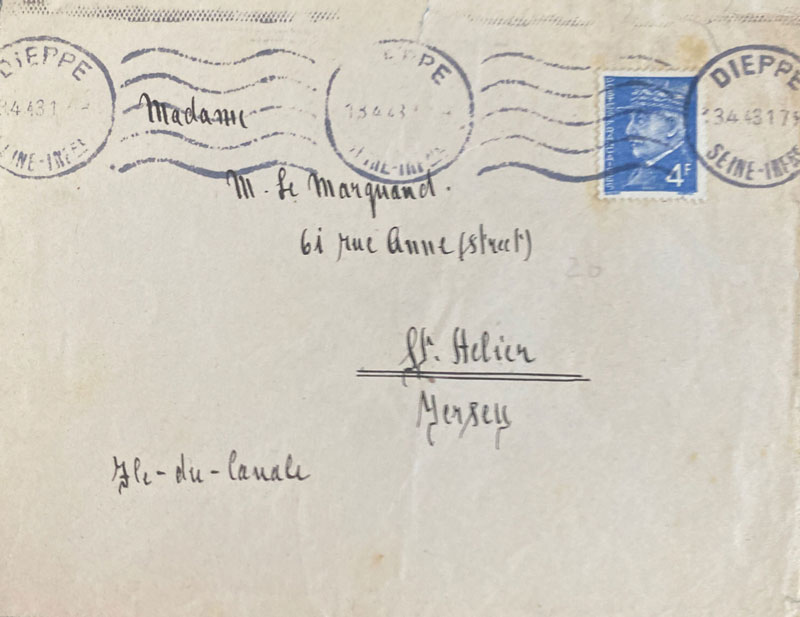 DIEPPE
13.4.43 17
SEINE-INFRE
DIEPPE
13.4.43
SEINE-INFRE
DIEPPE
13.4.43 17
SEINE-INFRE
4F
Madame
M. Le Marquand.
61 rue Anne (street)
20
St. Helier
Jersey
Ile-du-Canale